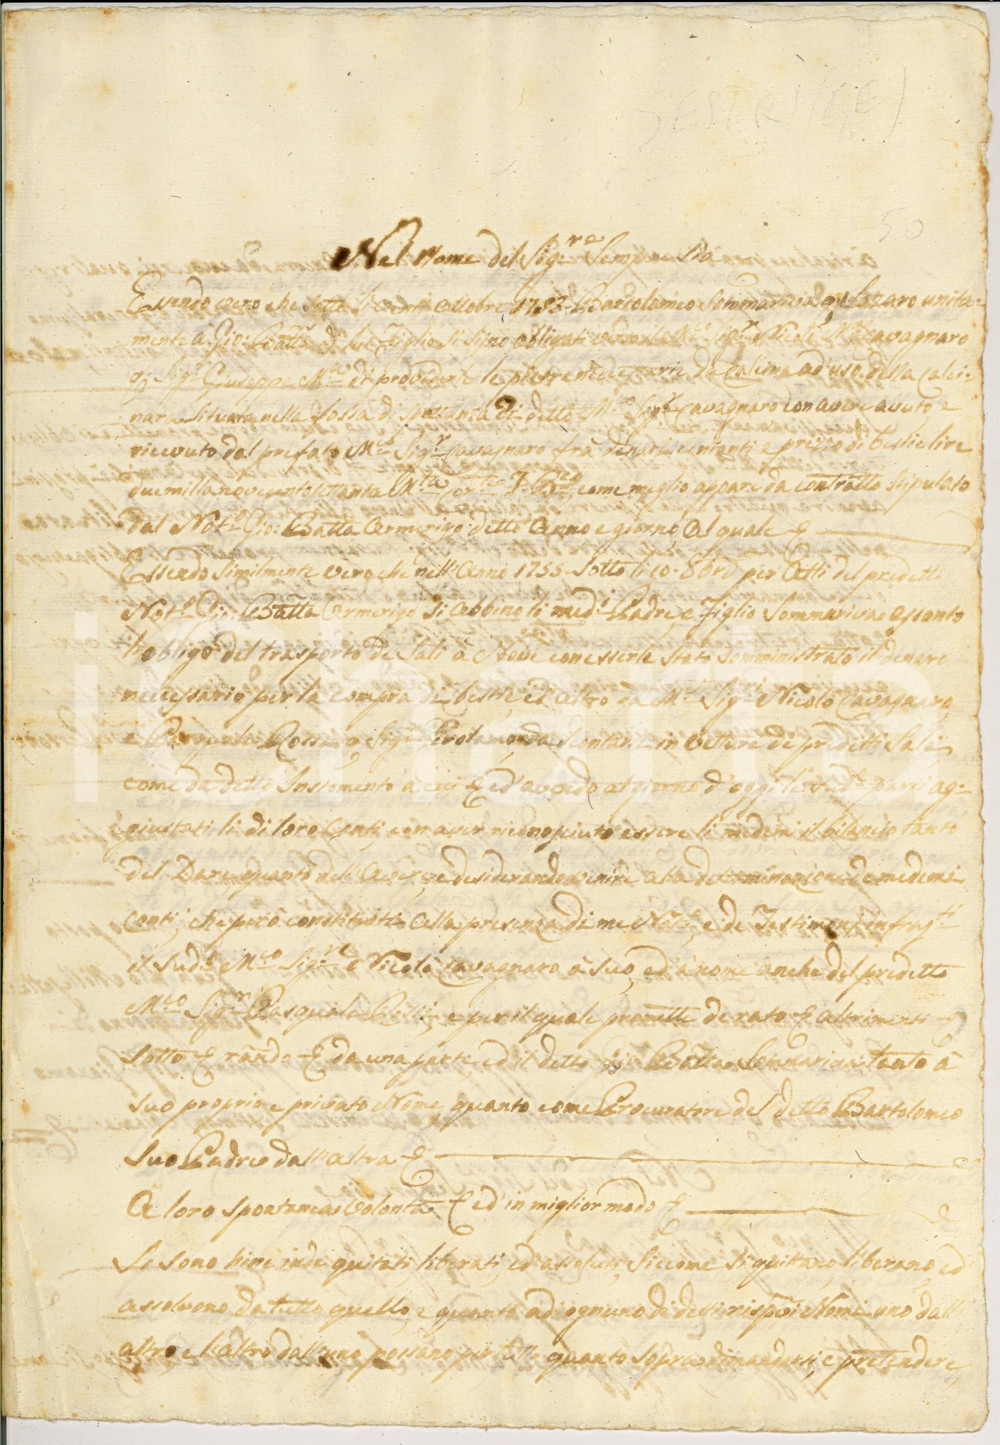 50
Nel Nome del Sig.re Sempre Sia
Essendo vero che sotto li venti ottobre 1753 Bartolomeo Sommariva q. Lazaro unita-
mente a Gio: Batta di lui Figlio si siino obligati verso il M.co Sig.r Nicolò M.a Cavagnaro
q. Sig.r Giuseppe M.a di provedere le pietre necessarie da Calcina ad'uso della Calci-
nara situata nella fossa di spettanza di detto M.co Sig.r Cavagnaro con avere avuto e
ricevuto dal prefato M.co Sig.r Cavagnaro frà denari contanti e prezzo di bestie lire
due milla novecentosettanta come meglio appare da contratto stipulato
dal Not.o Gio: Batta Armerigo detto Anno e giorno al quale &
Essendo similmente vero che nell'Anno 1755 sotto li 10 8bre per Atti del predetto
Not.o Gio: Batta Armerigo si abbino li med.i Padre e Figlio Sommariva assonto
l'obligo del trasporto de Sali a Nove con esserle stato somministrato il denaro
necessario per la compra di bestie ed altro da M.ci Sig.ri Nicolò Cavagnaro
e Pasquale Rossi q. Sig.r Gerolamo, da scontarsi in vetture de predetti Sali
come da detto Instromento a cui & ed' avendo al giorno d'oggi le sud.e parti ag-
giustati li di loro Conti, e con aver riconosciuto essere li medemi il bilancio tanto
del Dare, quanto nell'Avere, e desiderando venire alla determinazione de medemi
conti; che però constituiti alla presenza di me Not.o, e de Testimoni infras.ti
il sud.o M.co Sig.r Nicolò Cavagnaro a suo, ed a nome anche del predetto
M.co Sig.r Pasquale Rossi e per il quale promette de rato & altrimenti &
sotto & rånda & da una parte, ed il detto Gio: Batta Sommariva tanto à
suo proprio e privato Nome quanto come Procuratore del detto Bartolomeo
suo Padre dall'altra &
A loro spontanea volontà & ed' in miglior modo &
Si sono hinc inde quitati, liberati, ed assoluti, siccome si quittano, liberano, ed
assolvono da tutto quello, e quanto ad'ognuno di detti rispvi Nomi uno dall'
altro, e l'altro dall'uno possano per tutto quanto sopra dimandarsi, e pretendere,